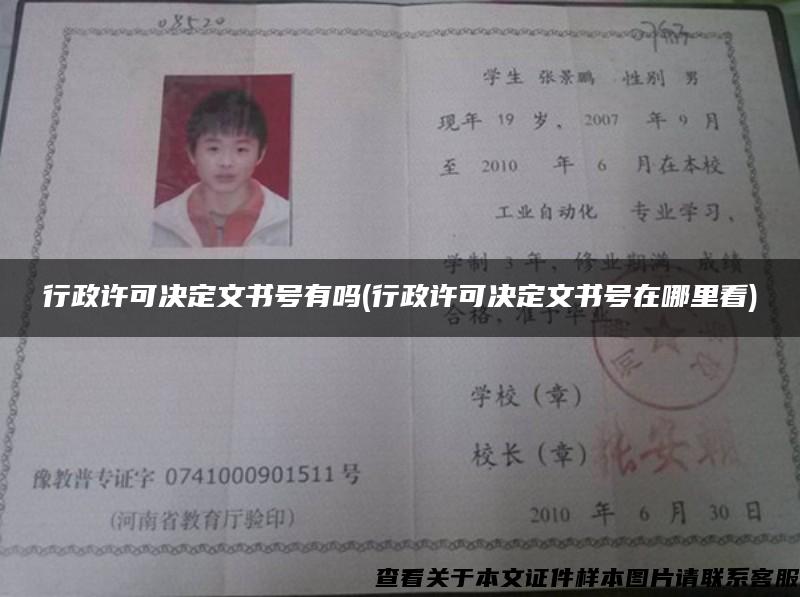 08520
学生 张景鹏 性别 男
现年 19 岁，2007 年 9 月
至 2010 年 6 月在本校
工业自动化 专业学习，
学制 3 年，修业期满，成绩
合格，准予毕业
行政许可决定文书号有吗(行政许可决定文书号在哪里看)
学校（章）
校长（章）
豫教普专证字 0741000901511 号
(河南省教育厅验印)
2010 年 6 月 30 日
查看关于本文证件样本图片请联系客服